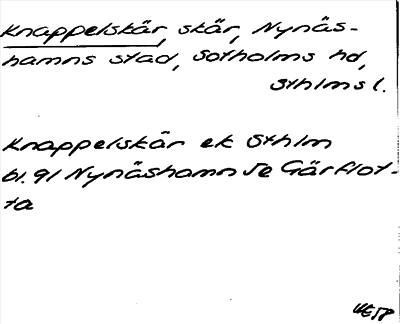 Knappelskär, skär, Nynäs-
hamns stad, Sotholms hd,
Sthlms l.
Knappelskär ek Sthlm
bl. 91 Nynäshamn SE Gärflot-
ta